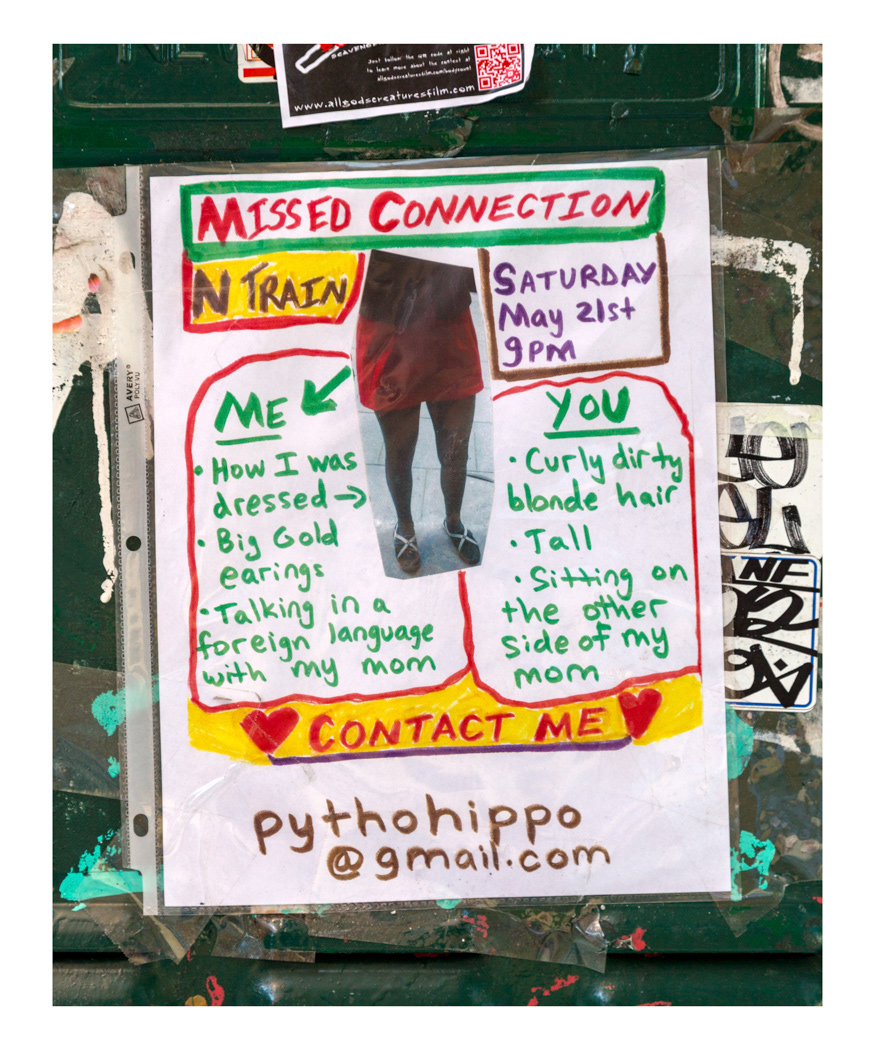 SCAVENGE
Just follow the QR code at right
to learn more about the contest at
allgodscreaturesfilm.com/bodycount
www.allgodscreaturesfilm.com
MISSED CONNECTION
N TRAIN
SATURDAY
May 21st
9pm
AVERY®
POLY VU
ME
• How I was
dressed →
• Big Gold
earings
• Talking in a
foreign language
with my mom
YOU
• Curly dirty
blonde hair
• Tall
• Sitting on
the other
side of my
mom
CONTACT ME
pythohippo
@gmail.com